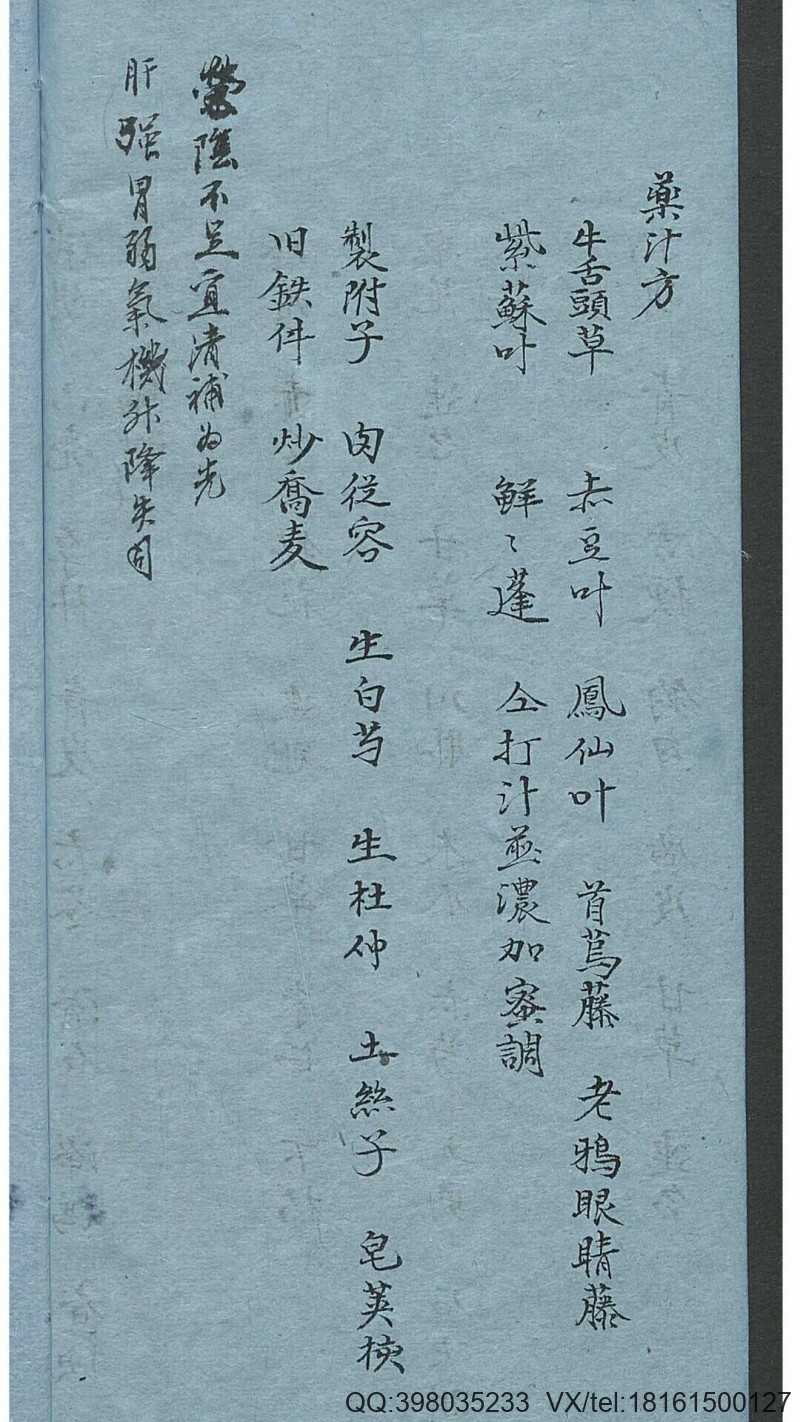 藥汁方
牛舌頭草 赤豆叶 鳳仙叶 首烏藤 老鴉眼睛藤
紫蘇叶 鮮〻蓬 仝打汁並濃加蜜調
製附子 肉從容 生白芍 生杜仲 土絲子 皂莢核
旧鉄件 炒喬麦
營陰不足宜清補為先
肝强胃弱氣機升降失司
QQ:398035233 VX/tel:18161500127